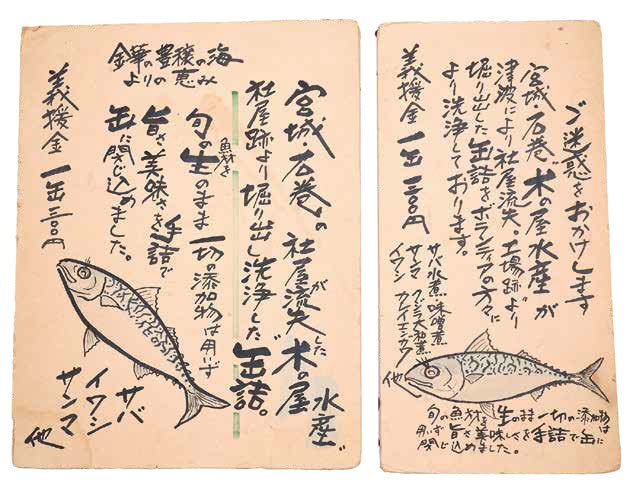 ご迷惑をおかけします
宮城・石巻"木の屋水産"が
津波により社屋流失。工場跡より
堀り出した缶詰をボランティアの方々に
より洗浄しております。
義援金 一缶三〇〇円
サバ水煮 味噌煮
サンマ クジラ大和煮
イワシ カレイエンガワ
他
旬の魚材を生のまま一切の添加物は
用いず旨さ美味しさを手詰で缶に
閉じ込めました。
宮城・石巻の社屋が流失した"木の屋水産"
社屋跡より堀り出し洗浄した缶詰。
魚材を
旬の生のまま一切の添加物は用いず
旨さ美味さを手詰で
缶に閉じ込めました。
金華の豊穣の海
よりの恵み
義援金 一缶三〇〇円
サバ
イワシ
サンマ
他